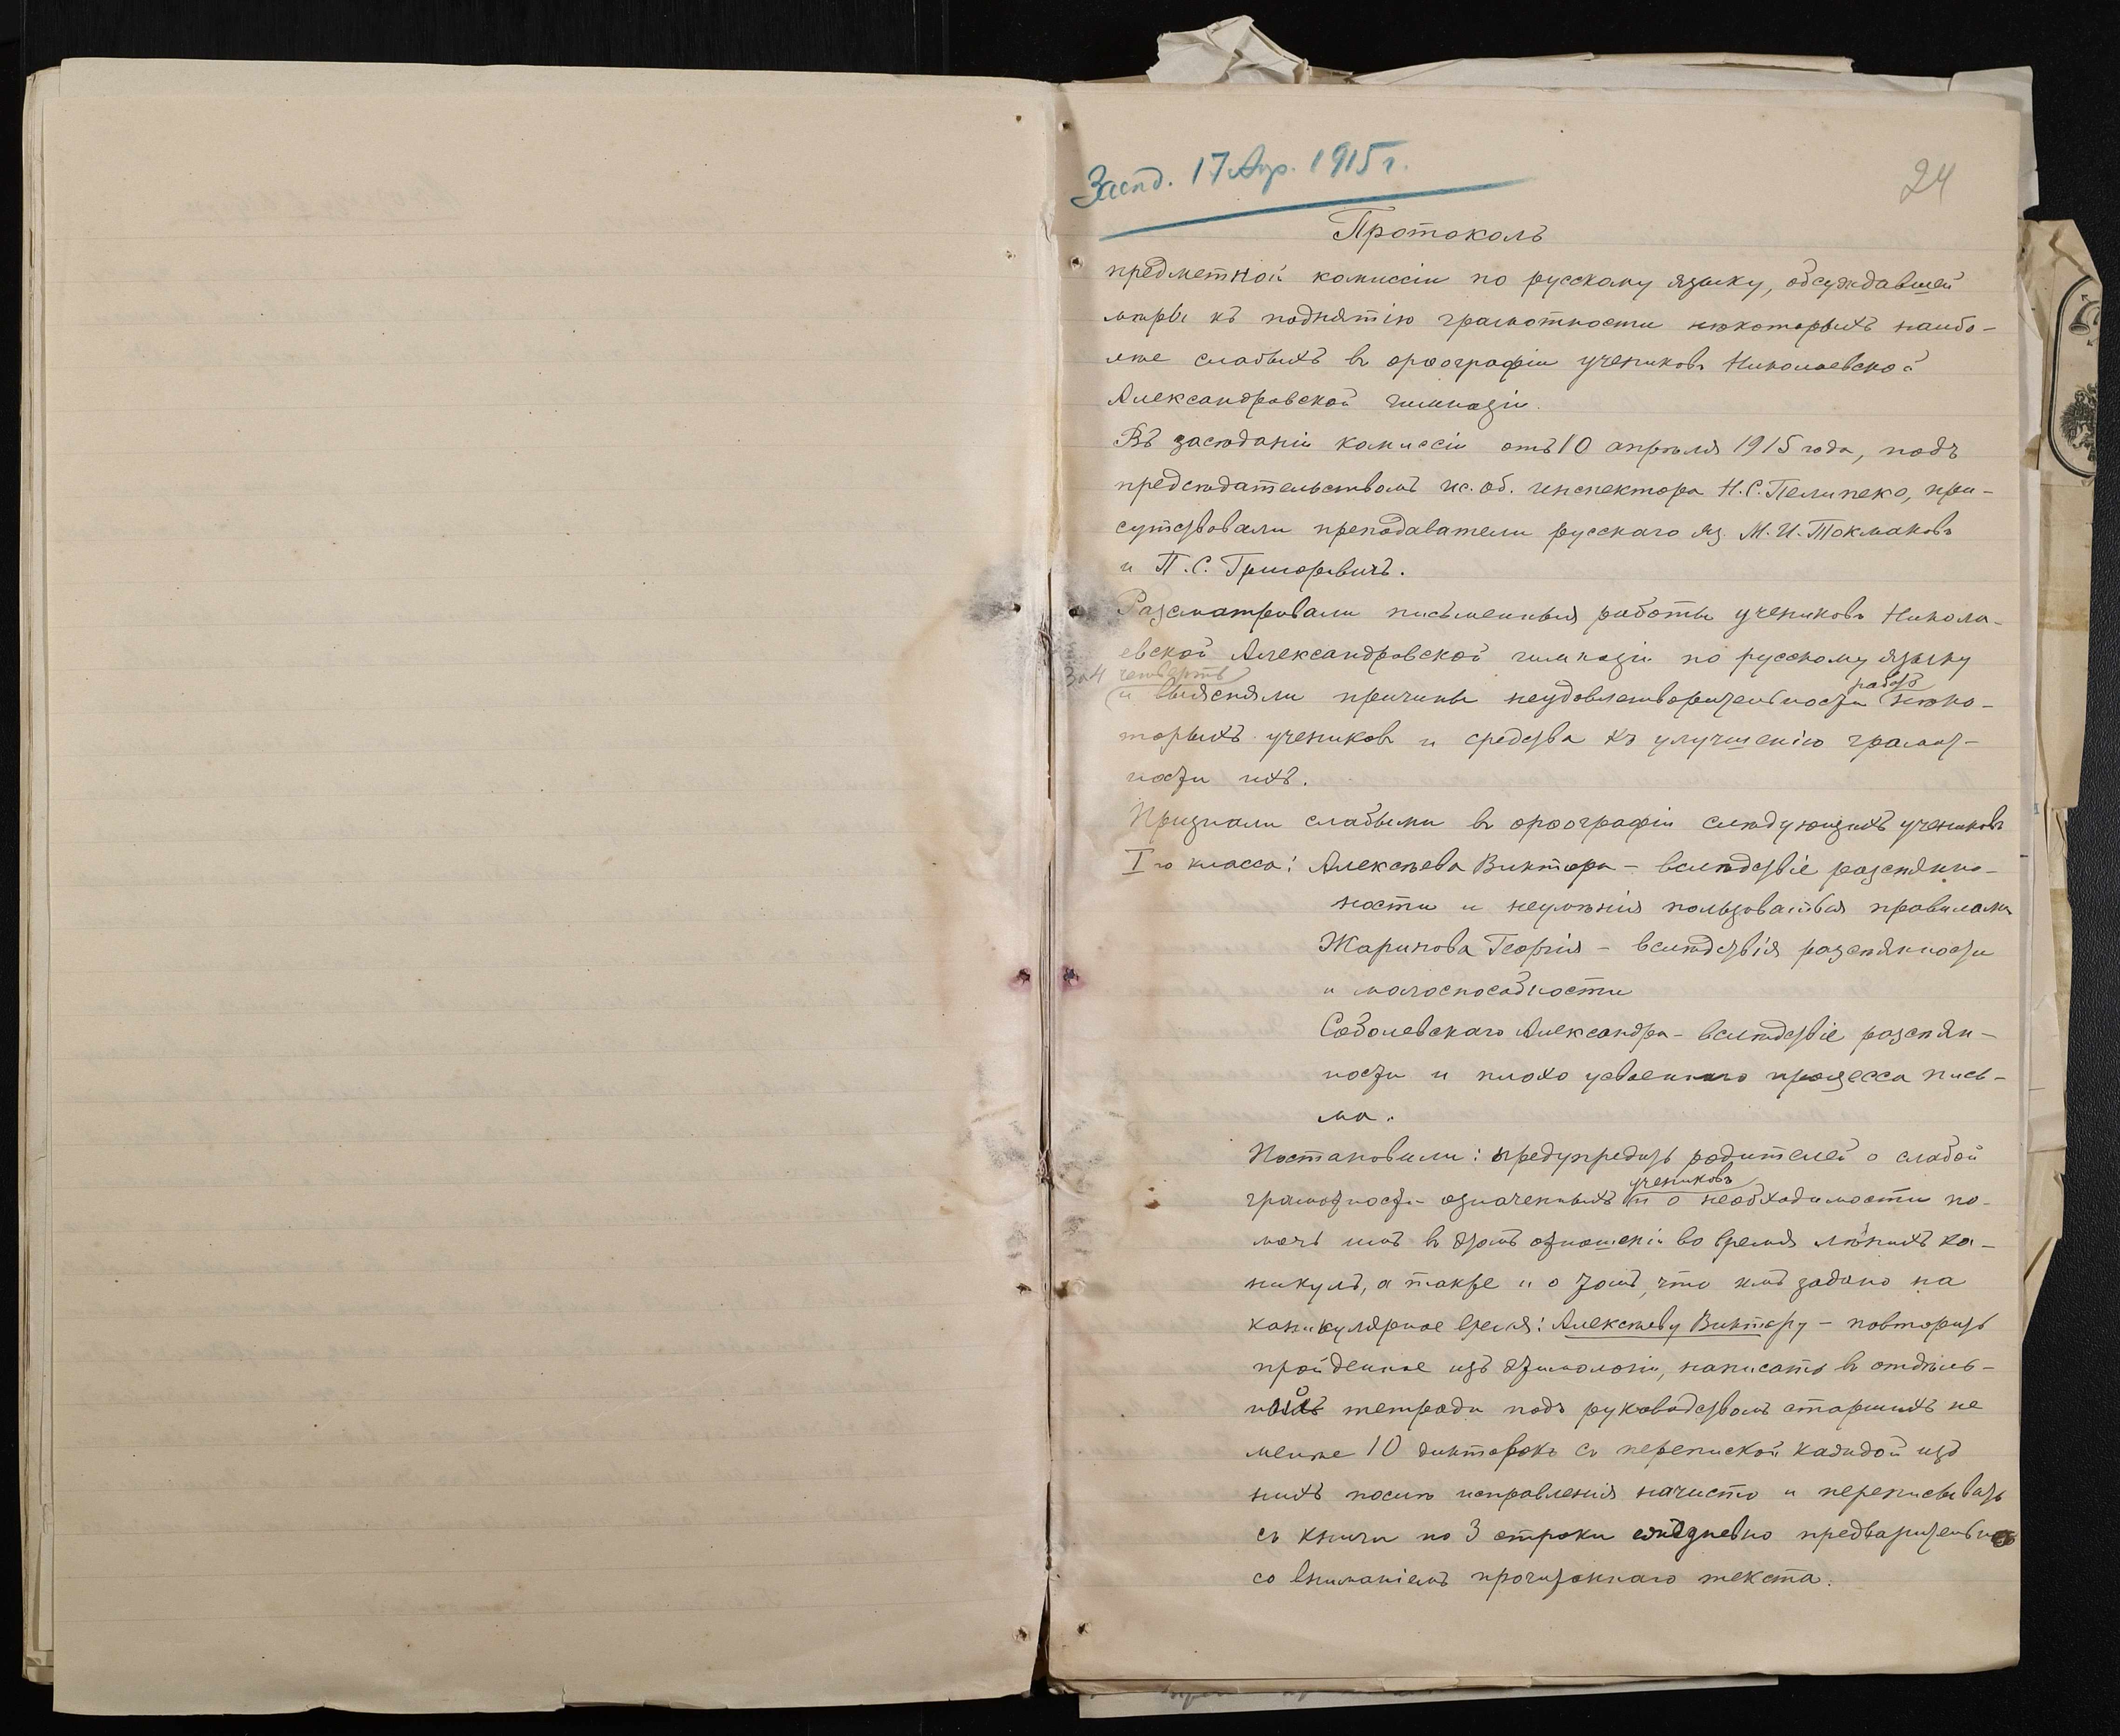 Засѣд. 17 Апр. 1915 г.
24
Протоколъ
предметной комиссіи по русскому языку, обсуждавшей
мѣры къ поднятію грамотности нѣкоторыхъ наибо-
лѣе слабыхъ въ орѳографіи учениковъ Николаевской
Александровской гимназіи.
Въ засѣданіи комиссіи отъ 10 апрѣля 1915 года, подъ
предсѣдательствомъ ис. об. инспектора Н.С. Пелипеко, при-
сутствовали преподаватели русскаго яз. М.И. Токмаковъ
и П.С. Григоревичъ.
Разсматривали письменныя работы учениковъ Никола-
евской Александровской гимназіи по русскому языку
за 4 четверть
работъ
и выясняли причины неудовлетворительности нѣко-
торыхъ учениковъ и средства къ улучшенію грамот-
ности ихъ.
Признали слабыми въ орѳографіи слѣдующихъ учениковъ
I го класса: Алексѣева Виктора – вслѣдствіе разсѣянно-
ности и неумѣнія пользоваться правилами
Жаринова Георгія – вслѣдствія разсѣянности
и малоспособности
Соболевскаго Александра – вслѣдствіе разсѣян-
ности и плохо усвоеннаго процесса пись-
ма.
Постановили: предупредить родителей о слабой
учениковъ
грамотности означенныхъ и о необходимости по-
мочь имъ въ этомъ отношеніи во время лѣтнихъ ка-
никулъ, а также и о томъ, что имъ задано на
каникулярное время: Алексѣеву Виктору – повторить
пройденное изъ этимологіи, написать въ отдѣль-
ной тетради подъ руководствомъ старшихъ не
менѣе 10 диктовокъ съ перепиской каждой изъ
нихъ послѣ исправленія начисто и переписывать
съ книги по 3 строки ежедневно предварительно
со вниманіемъ прочитаннаго текста.